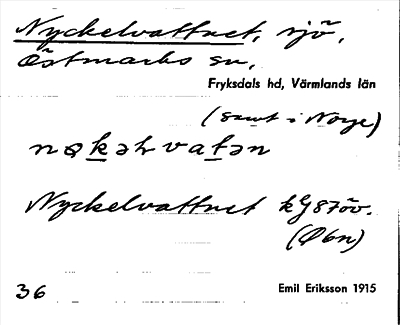 Nyckelvattnet, sjö,
Östmarks sn,
Fryksdals hd, Värmlands län
(samt i Norge)
Nyckelvattnet kG 87öv.
(Öbn)
36
Emil Eriksson 1915